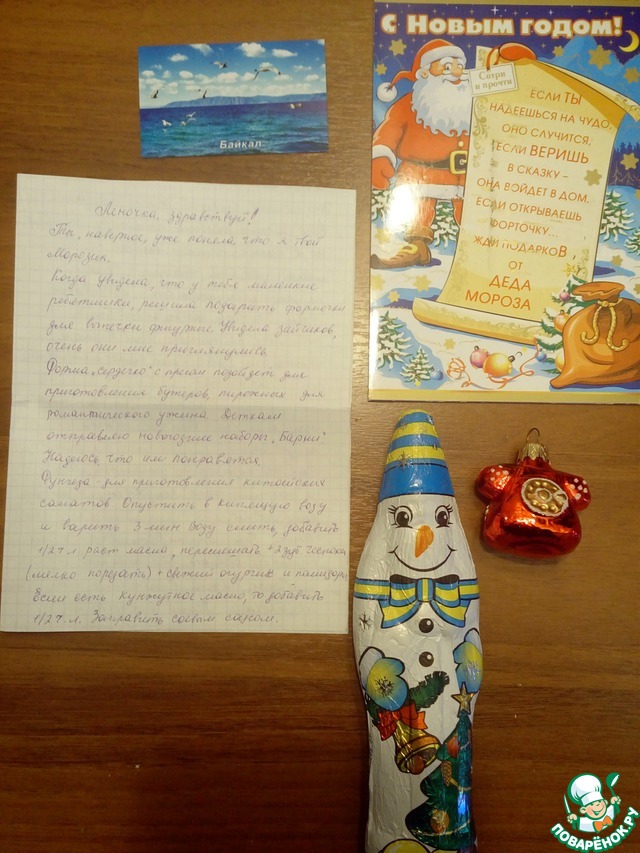 Байкал
С Новым годом!
Сотри
и прочти
ЕСЛИ ТЫ
НАДЕЕШЬСЯ НА ЧУДО,
ОНО СЛУЧИТСЯ,
ЕСЛИ ВЕРИШЬ
В СКАЗКУ -
ОНА ВОЙДЕТ В ДОМ,
ЕСЛИ ОТКРЫВАЕШЬ
ФОРТОЧКУ...
ЖДИ ПОДАРКОВ
ОТ
ДЕДА
МОРОЗА
Леночка, здравствуй!
Ты, наверное, уже поняла, что я твой
Морозик.
Когда увидела, что у тебя маленькие
ребятишки, решила подарить формочки
для выпечки фигурное. Увидела зайчиков,
очень они мне приглянулись.
Форма "сердечко" с прессом подойдет для
приготовления бутеров, пирожных для
романтического ужина. Деткам
отправляю новогодние наборы "Барни"
Надеюсь, что им понравятся.
Фунчеза - для приготовления китайских
салатов. Опустить в кипящую воду
и варить 3 мин. Воду слить, добавить
1/2 ч.л. раст. масла, перемешать + 2 зуб. чеснока
(мелко порезать) + свежий огурчик и помидоры
Если есть кунжутное масло, то добавить
1/2 ч.л. Заправить соевым соусом.
ПОВАРЁНОК.РУ